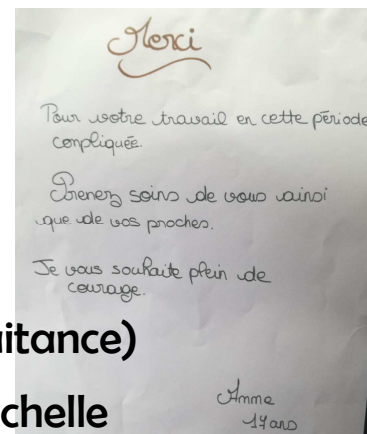 Merci
Pour votre travail en cette période
conpliquée.
Prenez soins de vous ainsi
que de vos proches.
Je vous souhaite plein de
courage.
itance)
chelle
Anme
17 ans